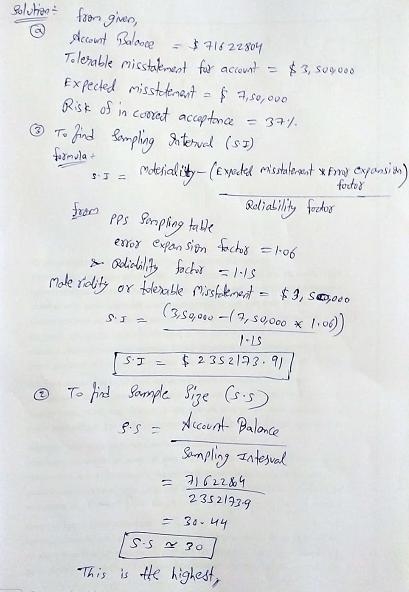 Solution :-
from given,
(a) Account Balance = $ 71622804
Tolerable misstatement for account = $ 3,500,000
Expected misstatement = $ 7,50,000
Risk of in coorect acceptance = 37%
③ To find Sampling Interval (SI)
formula :
S.I = Materiality - (Expected misstatement x Error expansion factor)
Reliability factor
from PPS Sampling table
error expansion factor = 1.06
& Reliability factor = 1.15
Materiality or tolerable Misstatement = $ 3,500,000
S.I = (3,50,000 - (7,50,000 x 1.06))
1.15
S.I = $ 2352173.91
② To find Sample Size (S.S)
S.S = Account Balance
Sampling Interval
= 71622804
2352173.9
= 30.44
S.S ≃ 30
This is the highest,